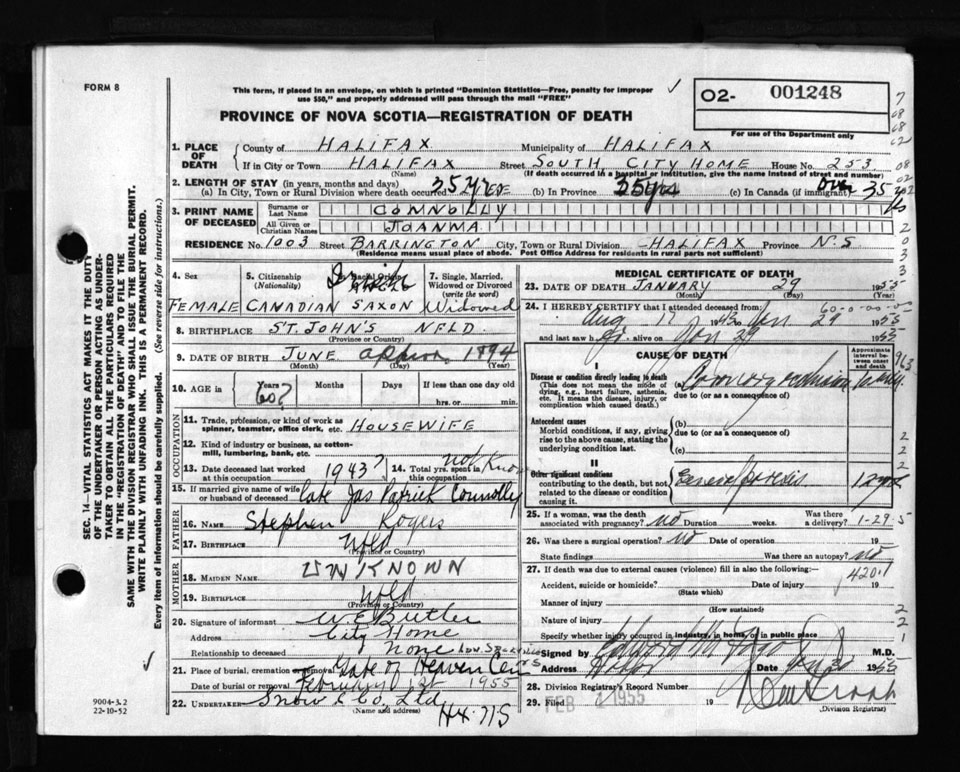 FORM 8
This form, if placed in an envelope, on which is printed "Dominion Statistics—Free, penalty for improper
use $50," and properly addressed will pass through the mail "FREE"
PROVINCE OF NOVA SCOTIA—REGISTRATION OF DEATH
O2- 001248
For use of the Department only
1. PLACE OF DEATH
County of HALIFAX Municipality of HALIFAX
If in City or Town HALIFAX Street SOUTH, CITY HOME House No. 253
(Name) (If death occurred in a hospital or institution, give the name instead of street and number)
2. LENGTH OF STAY (in years, months and days)
(a) In City, Town or Rural Division where death occurred 35 yrs (b) In Province 35 yrs (c) In Canada (if immigrant) over 35
3. PRINT NAME OF DECEASED
Surname or Last Name CONNOLLY
All Given or Christian Names JOANNA
RESIDENCE No. 1003 Street BARRINGTON City, Town or Rural Division HALIFAX Province N.S
(Residence means usual place of abode. Post Office Address for residents in rural parts not sufficient)
4. Sex
FEMALE
5. Citizenship
(Nationality)
CANADIAN
SAXON
7. Single, Married, Widowed or Divorced
(write the word)
Widowed
8. BIRTHPLACE ST. JOHN'S NFLD.
(Province or Country)
9. DATE OF BIRTH JUNE approx 1894
(Month) (Day) (Year)
10. AGE in Years 60? Months Days If less than one day old
hrs. or min.
OCCUPATION
11. Trade, profession, or kind of work as
spinner, teamster, office clerk, etc. HOUSEWIFE
12. Kind of industry or business, as cotton-
mill, lumbering, bank, etc.
13. Date deceased last worked
at this occupation 1943?
14. Total yrs. spent in
this occupation not Know
15. If married give name of wife
or husband of deceased late Jas Patrick Connolly
FATHER
16. NAME Stephen Rogers
17. BIRTHPLACE Nfld
(Province or Country)
MOTHER
18. MAIDEN NAME UNKNOWN
19. BIRTHPLACE Nfld
(Province or Country)
20. Signature of informant W. E. Butler
Address City Home
Relationship to deceased None
21. Place of burial, cremation or removal Gate of Heaven Cem
Date of burial or removal February 1st 1955
22. UNDERTAKER Snow & Co, Ltd
(Name and address)
H4.715
MEDICAL CERTIFICATE OF DEATH
23. DATE OF DEATH JANUARY 29 1955
(Month) (Day) (Year)
24. I HEREBY CERTIFY that I attended deceased from:
Aug 17 1943 to Jan 29 1955
and last saw h er alive on Jan 29 1955
CAUSE OF DEATH
Approximate interval between onset and death
I
Disease or condition directly leading to death
(This does not mean the mode of
dying, e.g., heart failure, asthenia,
etc. It means the disease, injury, or
complication which caused death.)
(a) Coronary occlusion
due to (or as a consequence of)
Antecedent causes
Morbid conditions, if any, giving
rise to the above cause, stating the
underlying condition last
(b)
due to (or as a consequence of)
(c)
II
Other significant conditions
contributing to the death, but not
related to the disease or condition
causing it.
General paresis 12 yrs
25. If a woman, was the death
associated with pregnancy? No Duration weeks. Was there a delivery?
1-29 5
26. Was there a surgical operation? No Date of operation 19
State findings Was there an autopsy? No
27. If death was due to external causes (violence) fill in also the following:
420.1
Accident, suicide or homicide? Date of injury 19
(State which)
Manner of injury
(How sustained)
Nature of injury
Specify whether injury occurred in industry, in home, or in public place
Signed by M.D.
Address Halifax Date Jan 30 1955
28. Division Registrar's Record Number
29. Filed FEB 1 1955 19
(Division Registrar)
SEC. 14—VITAL STATISTICS ACT MAKES IT THE DUTY
OF THE UNDERTAKER OR PERSON ACTING AS UNDER-
TAKER TO OBTAIN ALL THE PARTICULARS REQUIRED
IN THE "REGISTRATION OF DEATH" AND TO FILE THE
SAME WITH THE DIVISION REGISTRAR WHO SHALL ISSUE THE BURIAL PERMIT.
WRITE PLAINLY WITH UNFADING INK. THIS IS A PERMANENT RECORD.
Every item of information should be carefully supplied. (See reverse side for instructions.)
9004-3.2
22-10-52